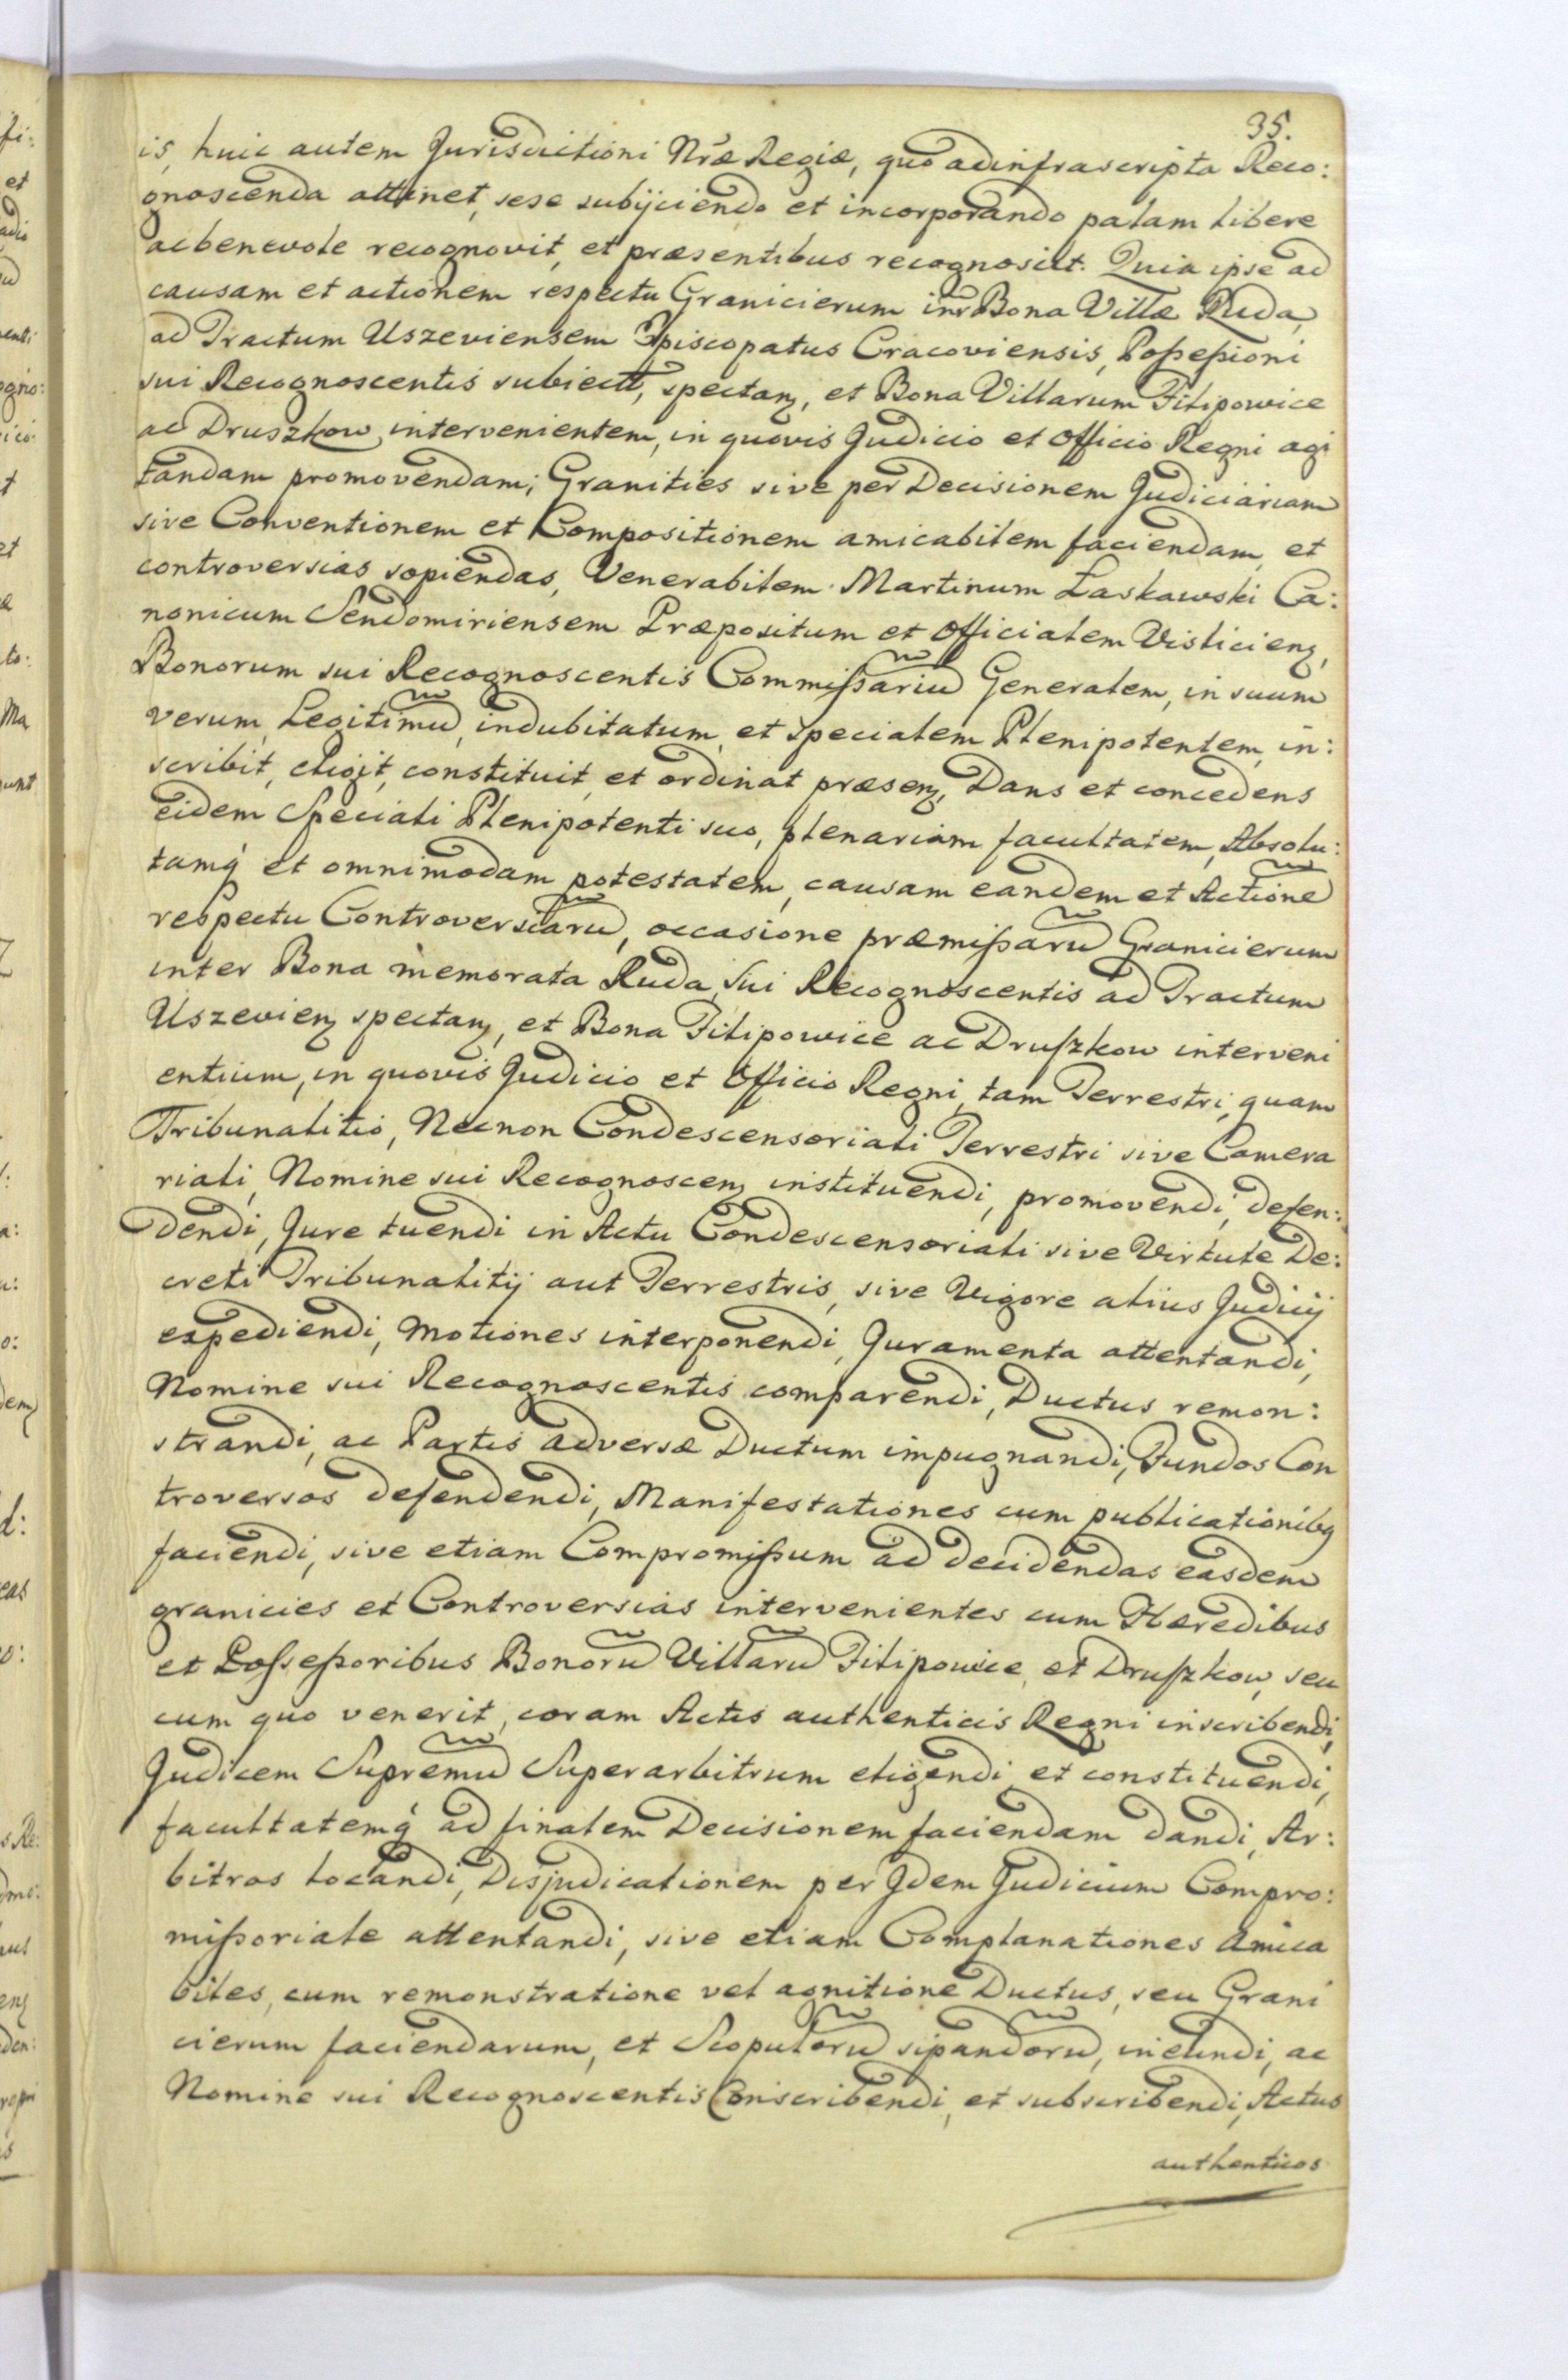 35.
is, huic autem Jurisdictioni Nr̃æ Regiæ, quo ad infrascripta Reco:
gnoscenda attinet, sese subijciendo et incorporando palam libere
ac benevole recognovit, et præsentibus recognoscit. Quia ipse ad
causam et actionem respectu Granicierum intr Bona Villæ Ruda,
ad Tractum Uszeviensem Episcopatus Cracoviensis, Poßeßioni
sui Recognoscentis subiect, spectanȝ, et Bona Villarum Filipowice
ac Druszkow, intervenientem, in quovis Judicio et Officio Regni agi
tandam promovendam; Granities sive per Decisionem Judiciariam
sive Conventionem et Compositionem amicabilem faciendam, et
controversias sopiendas, Venerabilem Martinum Łaskawski Ca:
nonicum Sendomiriensem Præpositum et Officialem Visliciens,
Bonorum sui Recognoscentis Commißariũ Generalem, in suum
verum, Legitimũ, indubitatum, et specialem Plenipotentem, in:
scribit, eligit, constituit, et ordinat præsenȝ, Dans et concedens
eidem Speciali Plenipotenti suo, plenariam facultatem, Absolu:
tamq́ et omnimodam potestatem, causam eandem et Actionẽ
respectu Controversiarũ, occasione præmißarũ Granicierum
inter Bona memorata Ruda, sui Recognoscentis ad Tractum
Uszevienȝ spectanȝ, et Bona Filipowice ac Drußzkow interveni
entium, in quovis Judicio et Officio Regni, tam Terrestri, quam
Tribunalitio, Necnon Condescensoriali Terrestri sive Camera
riali, Nomine sui Recognoscenȝ instituendi, promovendi, defen:
dendi, Jure tuendi in Actu Condescensoriali sive Virtute De:
creti Tribunalitij aut Terrestris, sive Vigore alius Judicij
expediendi, Motiones interponendi, Juramenta attentandi,
Nomine sui Recognoscentis comparendi, Ductus remon:
strandi, ac Partis adversæ Ductum impugnandi, Fundos Con
troversos defendendi, Manifestationes cum publicationibȝ
faciendi, sive etiam Compromißum ad decidendas easdem
granicies et Controversias intervenientes cum Hæredibus
et Poßeßoribus Bonorũ Villarũ Filipowice, et Drußzkow, seu
cum quo venerit, coram Actis authenticis Regni inscribendi,
Judicem Supremũ Superarbitrum eligendi et constituendi,
facultatemq́ ad finalem Decisionem faciendam dandi, Ar:
bitros locandi, Disjudicationem per Jdem Judicium Compro:
mißoriale attentandi, sive etiam Complanationes Amica
biles, cum remonstratione vel agnitione Ductus, seu Grani
cierum faciendarum, et Scopulorũ sipandorũ, ineundi, ac
Nomine sui Recognoscentis Conscribendi, et subscribendi, Actus
authenticos